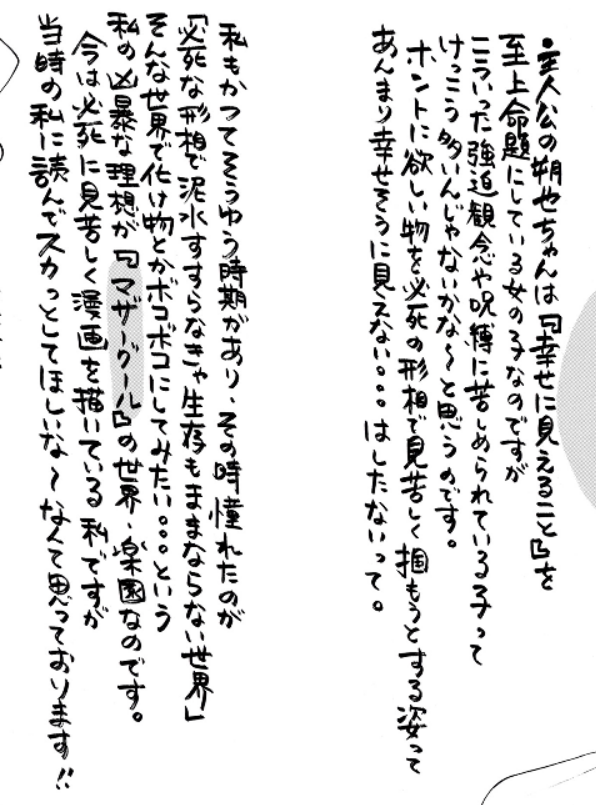 ・主人公の朔也ちゃんは『幸せに見えること』を
至上命題にしている女の子なのですが
こういった強迫観念や呪縛に苦しめられている子って
けっこう多いんじゃないかな〜と思うのです。
ホントに欲しい物を必死の形相で見苦しく掴もうとする姿って
あんまり幸せそうに見えない。。。はしたないって。
私もかつてそうゆう時期があり、その時憧れたのが
「必死な形相で泥水すすらなきゃ生存もままならない世界」
そんな世界で化け物とかボコボコにしてみたい。。。という
私の凶暴な理想が『マザーグール』の世界・楽園なのです。
今は必死に見苦しく漫画を描いている私ですが
当時の私に読んでスカっとしてほしいな〜なんて思っております!!